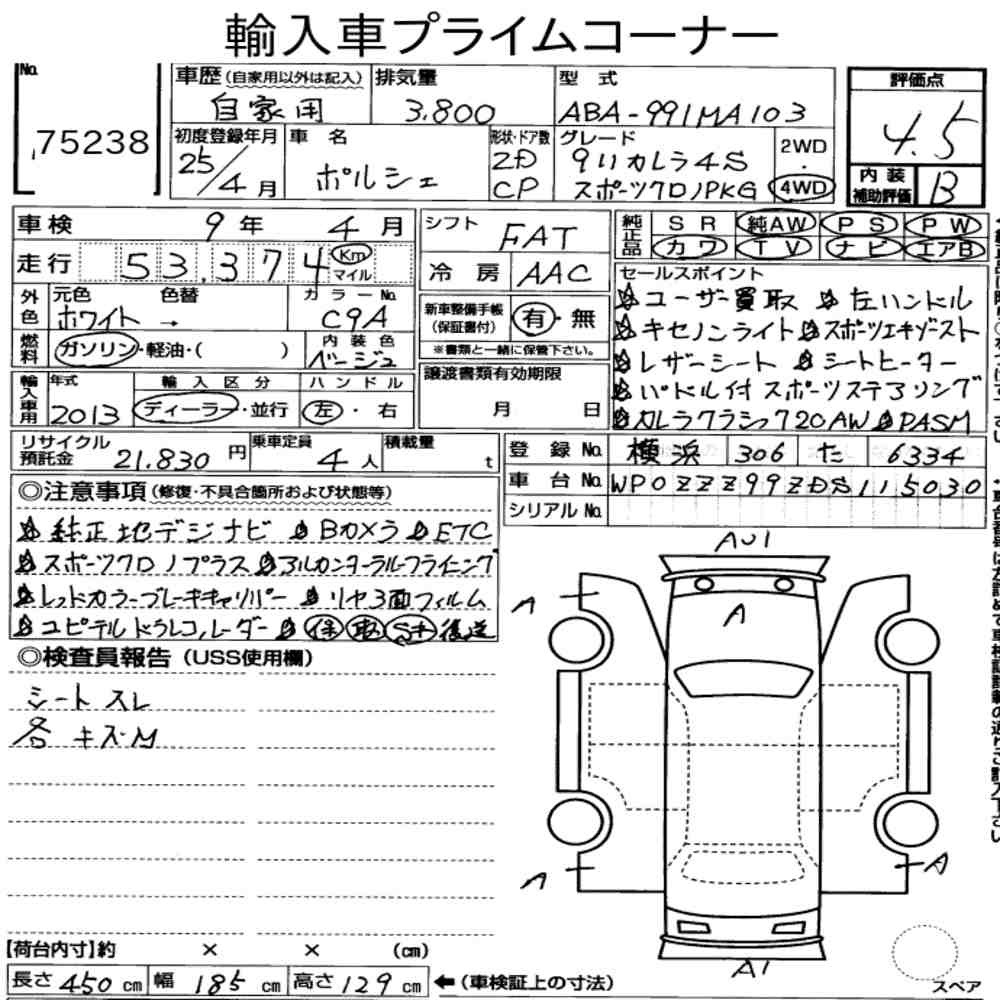 輸入車プライムコーナー
No. 75238
車歴(自家用以外は記入) 自家用
排気量 3.800
型式 ABA-991MA103
評価点 4.5
内装補助評価 B
初度登録年月 25/4月
車名 ポルシェ
形状・ドア数 2D CP
グレード 911カレラ4S
スポーツクロノPKG
2WD・4WD
車検 9年 4月
走行 53.374 Km マイル
シフト FAT
冷房 AAC
純正品 SR 純AW PS PW
カワ TV ナビ エアB
外色 元色 ホワイト → 色替
カラーNo. C9A
燃料 ガソリン・軽油・( )
内装色 ベージュ
新車整備手帳(保証書付) 有・無
※書類と一緒に保管下さい。
輸入車用 年式 2013
輸入区分 ディーラー・並行
ハンドル 左・右
譲渡書類有効期限 月 日
セールスポイント
☆ユーザー買取 ☆左ハンドル
☆キセノンライト ☆スポーツエキゾースト
☆レザーシート ☆シートヒーター
☆パドル付スポーツステアリング
☆カレラクラシック20AW ☆PASM
リサイクル預託金 21.830円
乗車定員 4人
積載量 t
登録No. 横浜 306 た 6334
車台No. WP0ZZZ99ZDS115030
シリアルNo.
◎注意事項(修復・不具合箇所および状態等)
☆純正地デジナビ ☆Bカメラ ☆ETC
☆スポーツクロノプラス ☆アルカンターラルーフライニング
☆レッドカラーブレーキキャリパー ☆リヤ3面フィルム
☆ユピテルドラレコ,レーダー ☆保 取 S+ 後送
◎検査員報告(USS使用欄)
シートスレ
各キズM
AU1
A
A
A
A
A1
【荷台内寸】約 × × (cm)
長さ450cm 幅185cm 高さ129cm ←(車検証上の寸法)
スペア